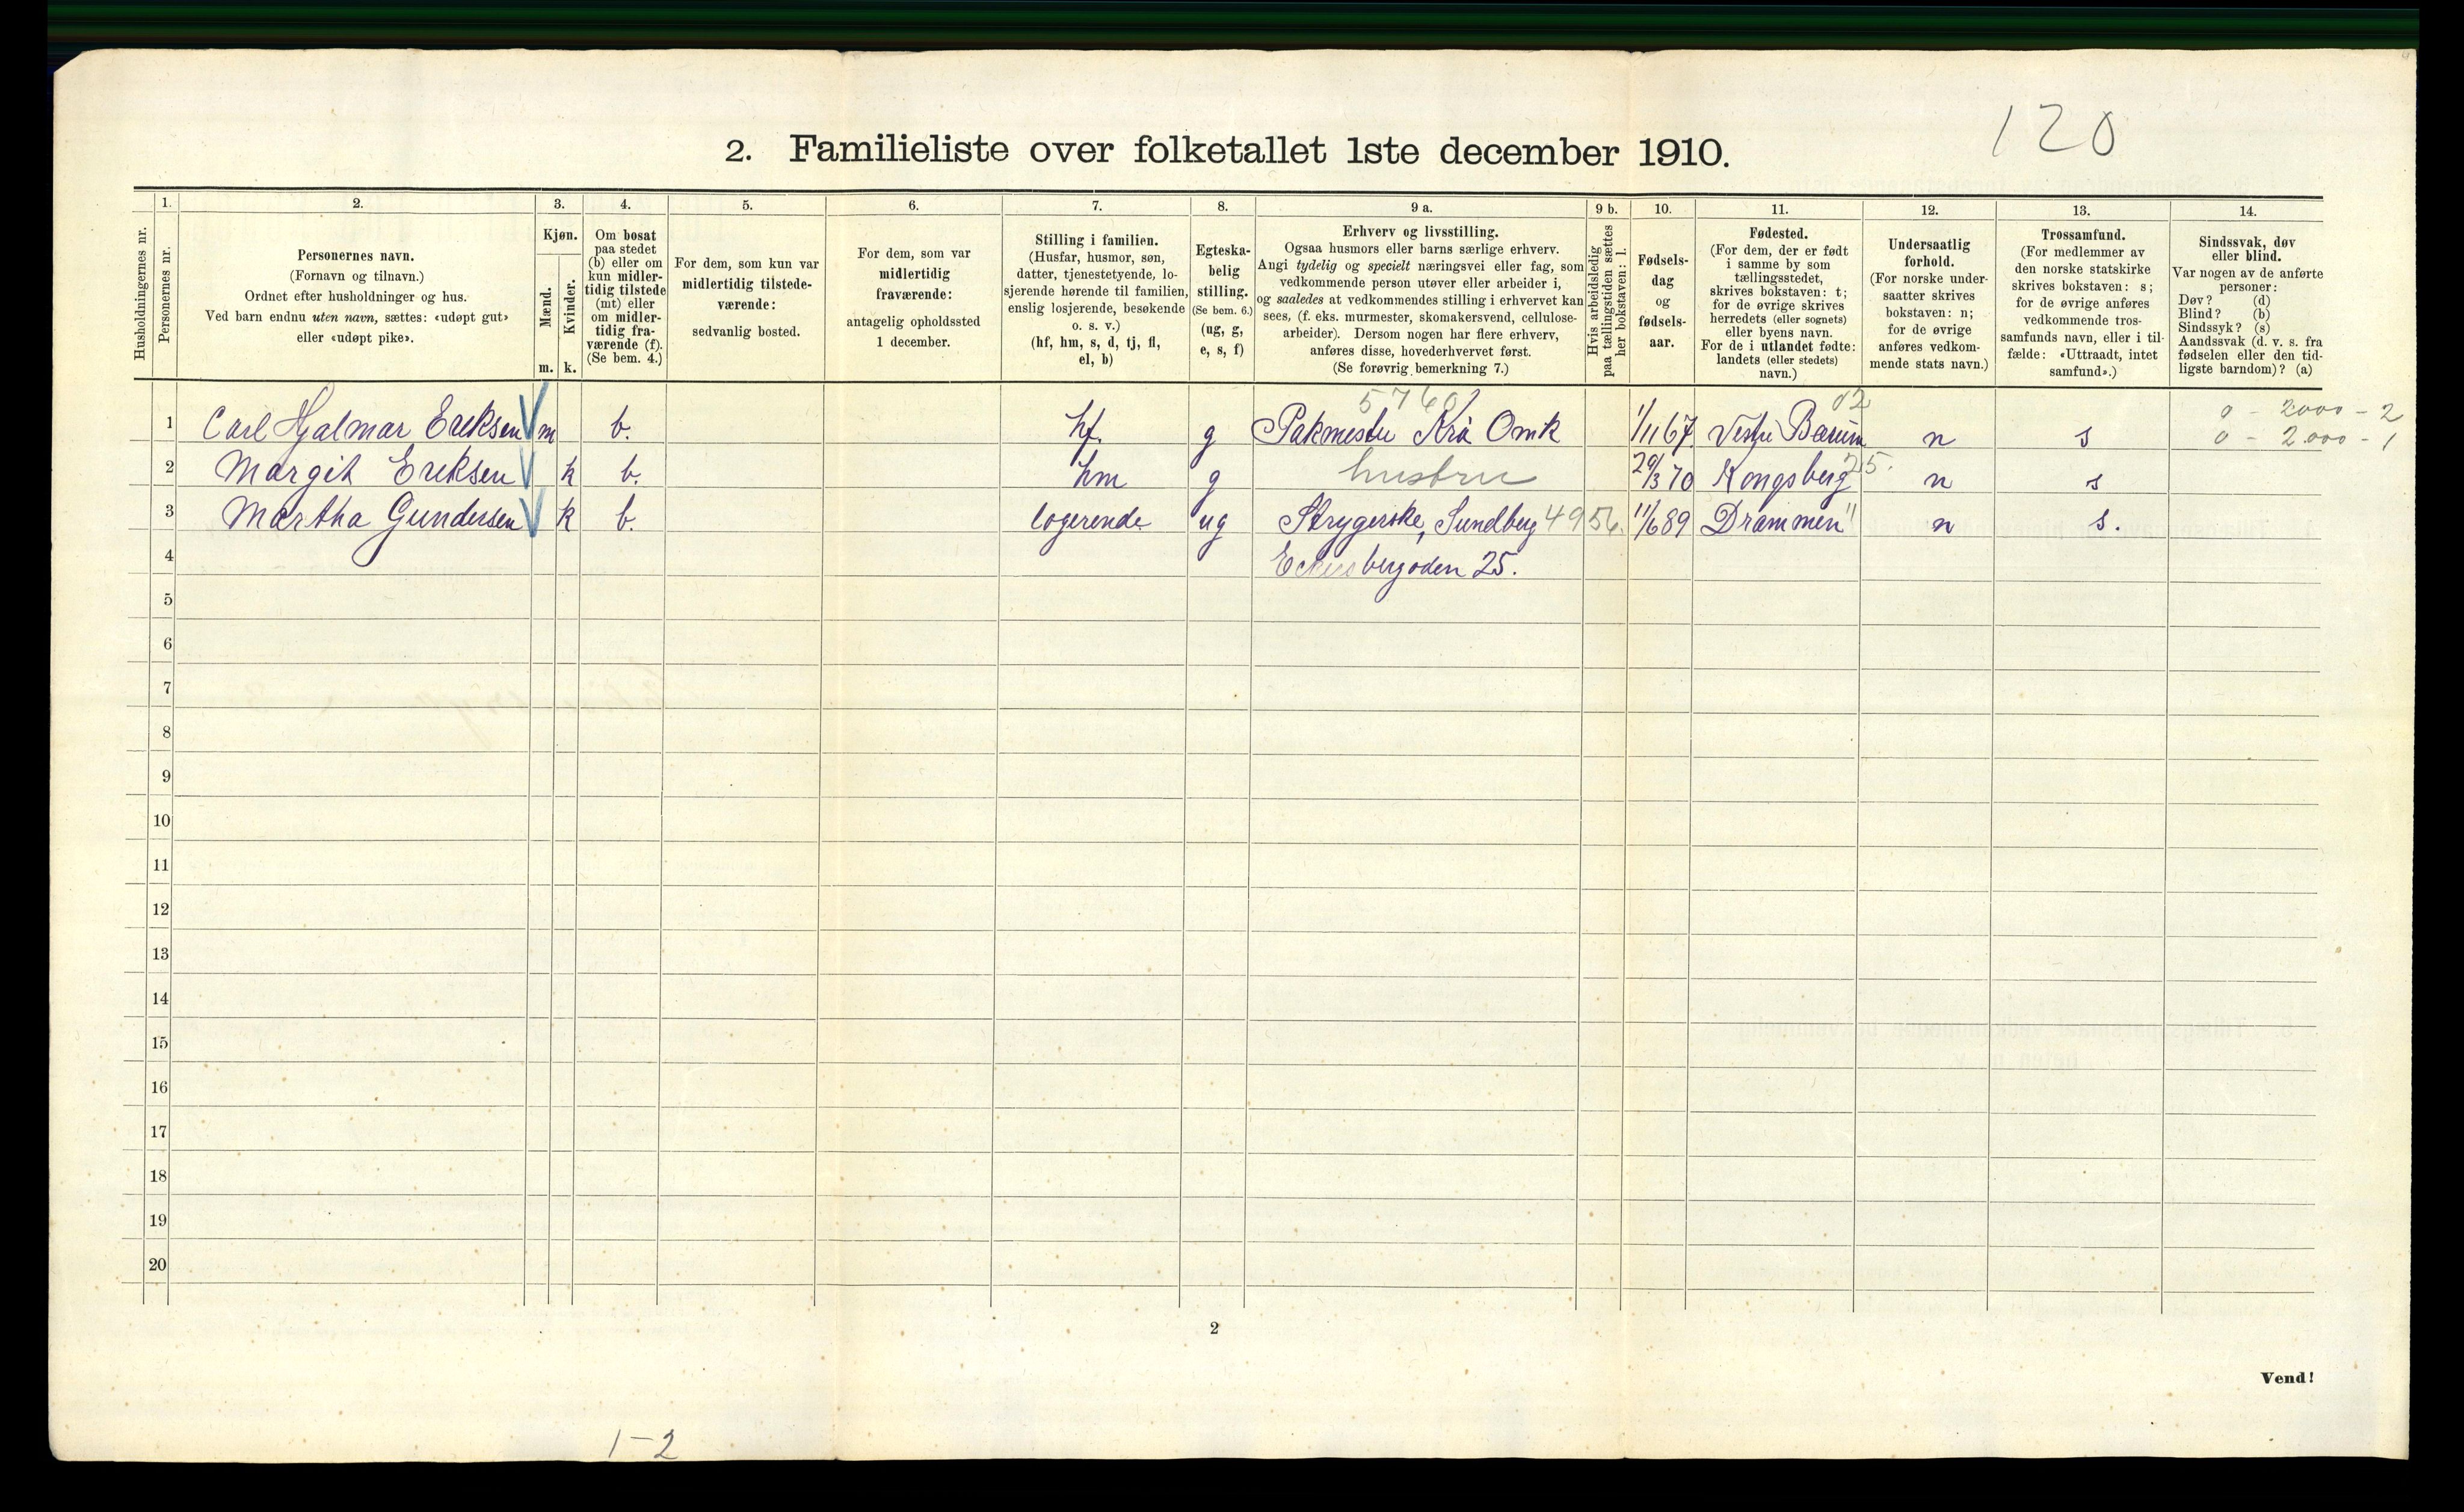 120
2. Familieliste over folketallet 1ste december 1910.
Husholdningernes nr.
1.
Personernes nr.
2.
Personernes navn.
(Fornavn og tilnavn.)
Ordnet efter husholdninger og hus.
Ved barn endnu uten navn, sættes: «udøpt gut»
eller «udøpt pike».
3.
Kjøn.
Mænd.
Kvinder.
m. k.
4.
Om bosat
paa stedet
(b) eller om
kun midler-
tidig tilstede
(mt) eller
om midler-
tidig fra-
værende (f).
(Se bem. 4.)
5.
For dem, som kun var
midlertidig tilstede-
værende:
sedvanlig bosted.
6.
For dem, som var
midlertidig
fraværende:
antagelig opholdssted
1 december.
7.
Stilling i familien.
(Husfar, husmor, søn,
datter, tjenestetyende, lo-
sjerende hørende til familien,
enslig losjerende, besøkende
o. s. v.)
(hf, hm, s, d, tj, fl,
el, b)
8.
Egteska-
belig
stilling.
(Se bem. 6.)
(ug, g,
e, s, f)
9 a.
Erhverv og livsstilling.
Ogsaa husmors eller barns særlige erhverv.
Angi tydelig og specielt næringsvei eller fag, som
vedkommende person utøver eller arbeider i,
og saaledes at vedkommendes stilling i erhvervet kan
sees, (f. eks. murmester, skomakersvend, cellulose-
arbeider). Dersom nogen har flere erhverv,
anføres disse, hovederhvervet først.
(Se forøvrig bemerkning 7.)
9 b.
Hvis arbeidsledig
paa tællingstiden sættes
her bokstaven: l.
10.
Fødsels-
dag
og
fødsels-
aar.
11.
Fødested.
(For dem, der er født
i samme by som
tællingsstedet,
skrives bokstaven: t;
for de øvrige skrives
herredets (eller sognets)
eller byens navn.
For de i utlandet fødte:
landets (eller stedets)
navn.)
12.
Undersaatlig
forhold.
(For norske under-
saatter skrives
bokstaven: n;
for de øvrige
anføres vedkom-
mende stats navn.)
13.
Trossamfund.
(For medlemmer av
den norske statskirke
skrives bokstaven: s;
for de øvrige anføres
vedkommende tros-
samfunds navn, eller i til-
fælde: «Uttraadt, intet
samfund».)
14.
Sindssvak, døv
eller blind.
Var nogen av de anførte
personer:
Døv? (d)
Blind? (b)
Sindssyk? (s)
Aandssvak (d. v. s. fra
fødselen eller den tid-
ligste barndom)? (a)
5760 02 0 - 2000 - 2
1 Carl Hjalmar Eriksen m b. hf. g Pakmester Kra Omk 1/11 67 Vestre Bærum n s 0 - 2000 - 1
2 Margit Eriksen k b. hm g hustru 29/3 70 Kongsberg n s
3 Martha Gundersen k b. logerende ug Strygerske, Sundberg 4956. 11/6 89 Drammen n s.
4 25.
5
6
7
8
9
10
11
12
13
14
15
16
17
18
19
20
2
Vend!
1-2